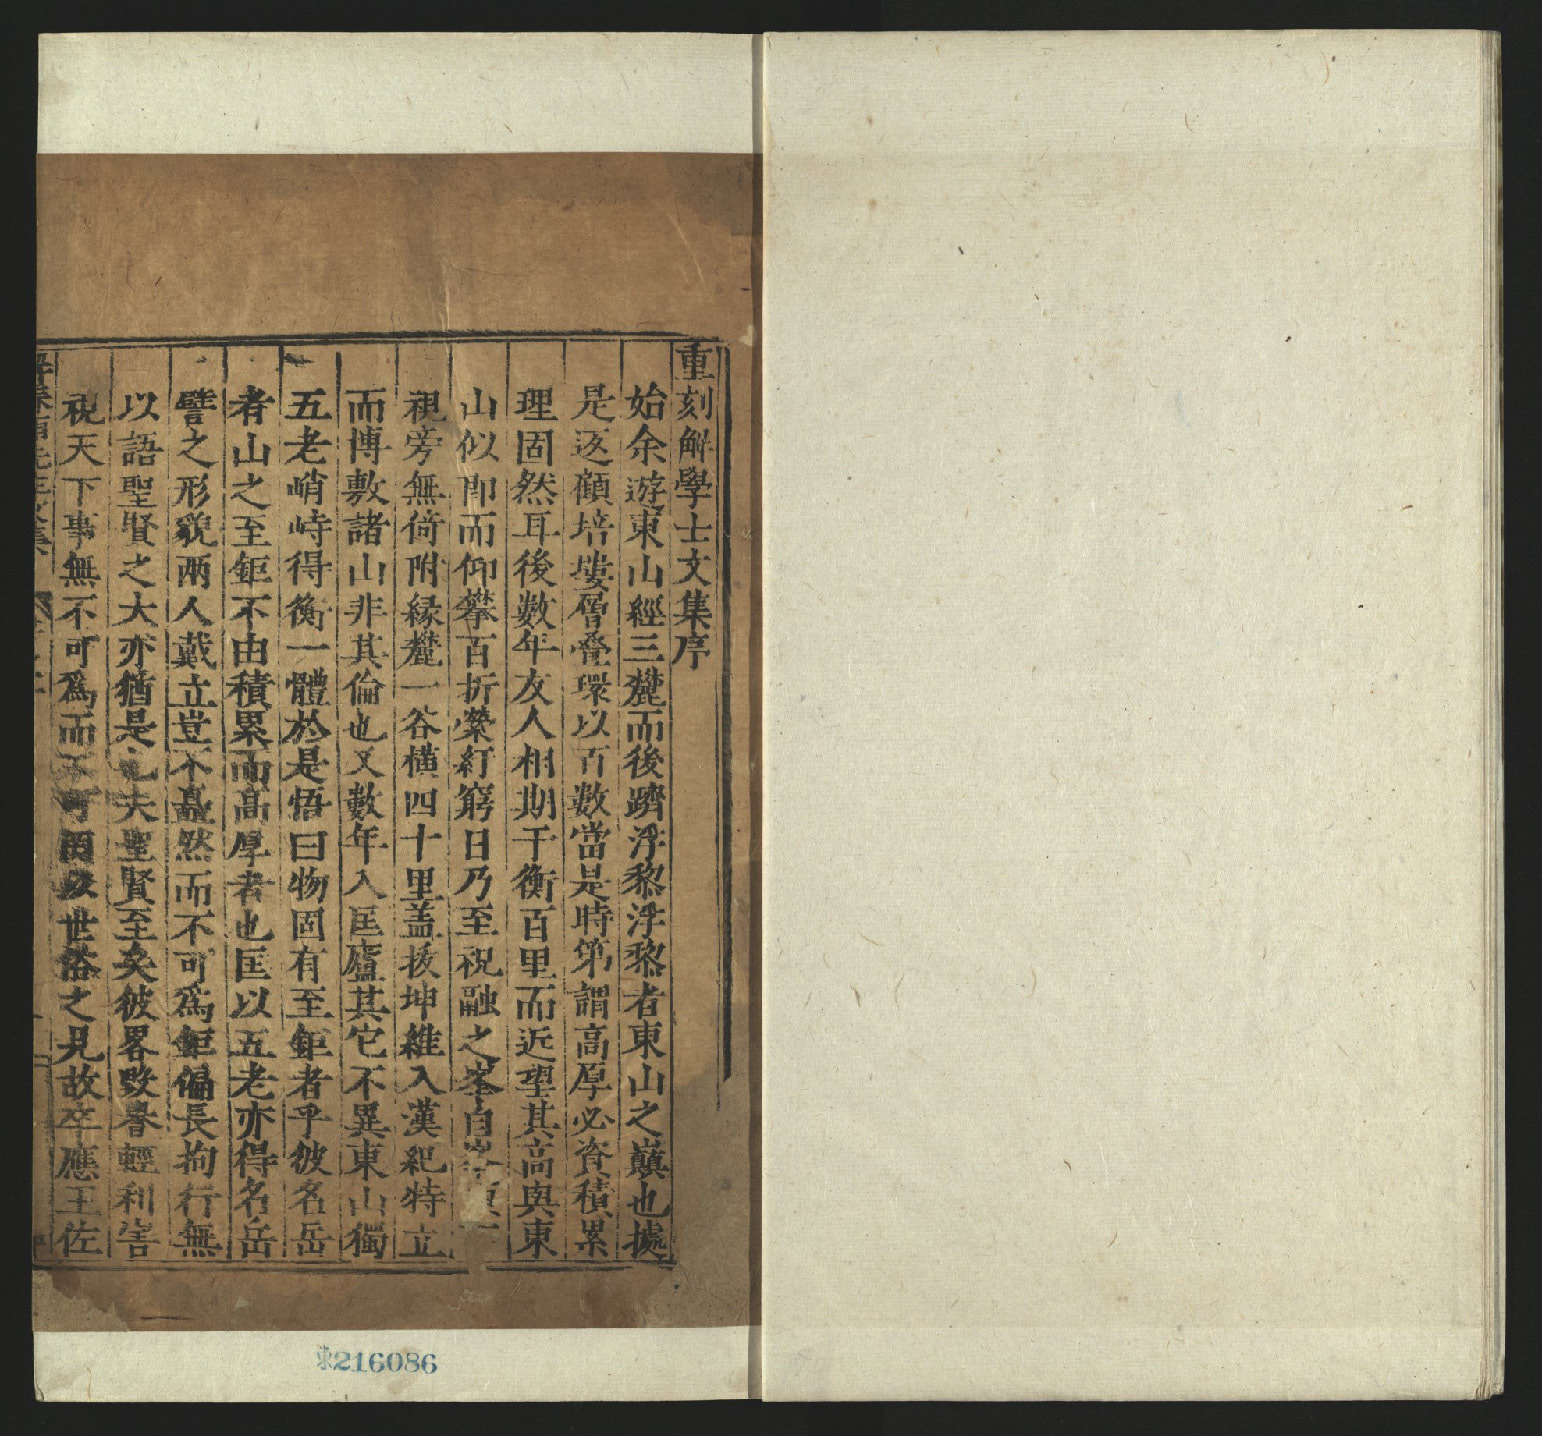 重刻解學士文集序
始余遊東山經三麓而後躋浮黎浮黎者東山之巔也據
是返顧培塿層疊環以百數當是時第謂高厚必資積累
理固然耳後數年友人相期于衡百里而近望其高與東
山似即而仰攀百折縈紆窮日乃至祝融之峯自
視旁無倚附緣麓一谷橫四十里蓋拔坤維入漢紀特立
而博敷諸山非其倫也又數年入匡廬其它不異東山獨
五老峭峙得衡一體於是悟曰物固有至鉅者乎彼名岳
者山之至鉅不由積累而高厚者也匡以五老亦得名岳
譬之形貌兩人戴立豈不矗然而不可為鉅偏長拘行無
以語聖賢之大亦猶是也夫聖賢至矣彼畧毀譽輕利害
視天下事無不可為而世俗之見故卒應王佐
216086